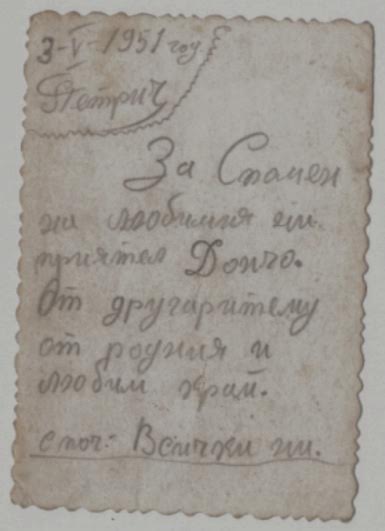 3-V-1951 год.
Петрич
За Спомен
на любимия ни
приятел Дончо.
От другаритему
от родния и
любим край.
с поч: Всички ни.